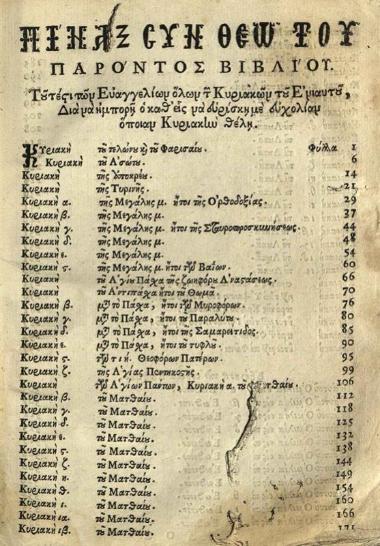 ΠΙΝΑΞ ΣΥΝ ΘΕΩ ΤΟΥ
ΠΑΡΟΝΤΟΣ ΒΙΒΛΙΟΥ.
Τουτέστι τῶν Εὐαγγελίων ὅλων τῶν Κυριακῶν τοῦ Ἐνιαυτοῦ,
Διὰ νὰ ἠμπορῇ ὁ καθ' εἷς νὰ εὑρίσκῃ με εὐχολίαν
ὁποίαν Κυριακὴν θέλῃ.
Κυριακὴ τοῦ τελώνου καὶ τοῦ Φαρισαίου. Φύλλα 1
Κυριακὴ τοῦ Ἀσώτου. 6
Κυριακὴ τῆς Ἀπόκρεω. 14
Κυριακὴ τῆς Τυρινῆς. 21
Κυριακὴ α. τῆς Μεγάλης μ. ἤτοι τῆς Ὀρθοδοξίας. 29
Κυριακὴ β. τῆς Μεγάλης μ. 37
Κυριακὴ γ. τῆς Μεγάλης μ. ἤτοι τῆς Σταυροπροσκυνήσεως. 44
Κυριακὴ δ. τῆς Μεγάλης μ. 48
Κυριακὴ ε. τῆς Μεγάλης μ. 54
Κυριακὴ ς. τῆς Μεγάλης μ. ἤτοι τῶν Βαΐων. 60
Κυριακὴ τοῦ Ἁγίου Πάσχα τῆς ζωηφόρου Ἀναστάσεως. 66
Κυριακὴ τοῦ Ἀντίπασχα ἤτοι τοῦ Θωμᾶ. 70
Κυριακὴ β. μετὰ τὸ Πάσχα, ἤτοι τῶν Μυροφόρων. 76
Κυριακὴ γ. μετὰ τὸ Πάσχα, ἤτοι τοῦ Παραλύτου. 80
Κυριακὴ δ. μετὰ τὸ Πάσχα, ἤτοι τῆς Σαμαρείτιδος. 85
Κυριακὴ ε. μετὰ τὸ Πάσχα, ἤτοι τοῦ τυφλοῦ. 90
Κυριακὴ ς. τῶν τιη. Θεοφόρων Πατέρων. 95
Κυριακὴ ζ. τῆς Ἁγίας Πεντηκοστῆς. 99
Κυριακὴ τῶν Ἁγίων Πάντων, Κυριακὴ α. τοῦ Ματθαίου. 106
Κυριακὴ β. τοῦ Ματθαίου. 112
Κυριακὴ γ. τοῦ Ματθαίου. 118
Κυριακὴ δ. τοῦ Ματθαίου. 125
Κυριακὴ ε. τοῦ Ματθαίου. 132
Κυριακὴ ς. τοῦ Ματθαίου. 138
Κυριακὴ ζ. τοῦ Ματθαίου. 144
Κυριακὴ η. τοῦ Ματθαίου. 149
Κυριακὴ θ. τοῦ Ματθαίου. 154
Κυριακὴ ι. τοῦ Ματθαίου. 160
Κυριακὴ ια. τοῦ Ματθαίου. 166
Κυριακὴ ιβ. τοῦ Ματθαίου. 171